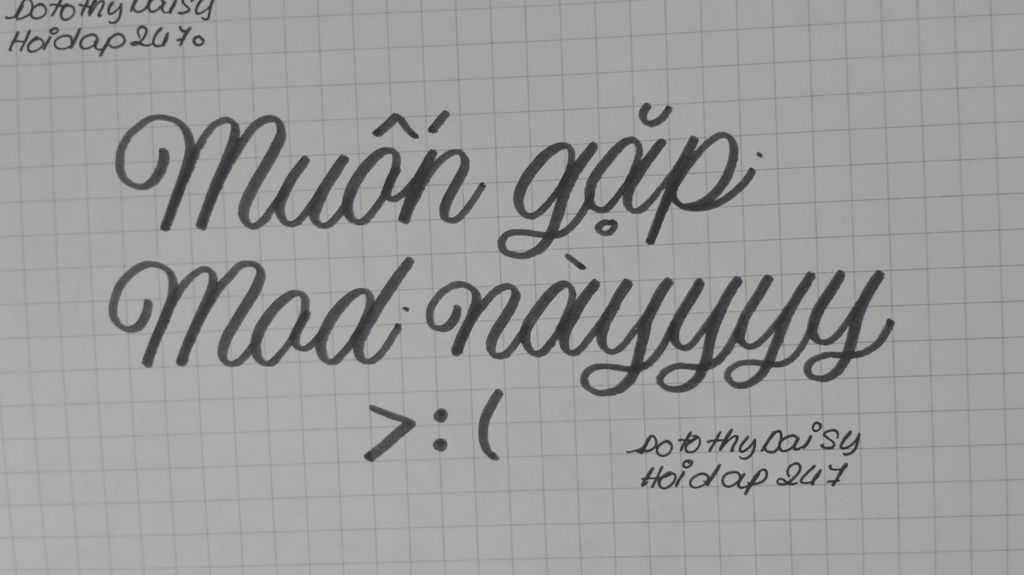 DotothyDaisy
Hoidap247
Muốn gặp
Mad nàyyyy
>:(
DotothyDaisy
Hoidap247